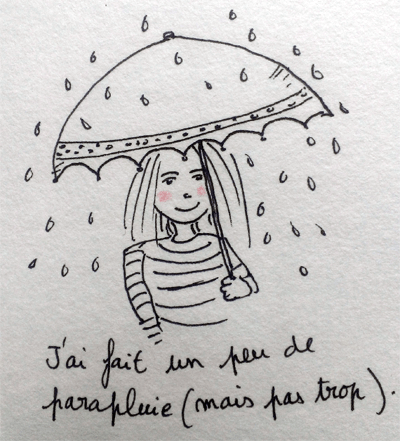 J'ai fait un peu de
parapluie (mais pas trop).